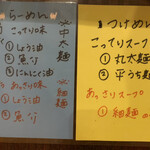 らーめん
※中太麺
こってり味
①しょうゆ
②魚だし
③にんにく油
あっさり味
※細麺
①しょうゆ
②魚だし
つけめん
こってりスープ
①丸太麺
②平うち麺
あっさりスープ
①細麺
のみ